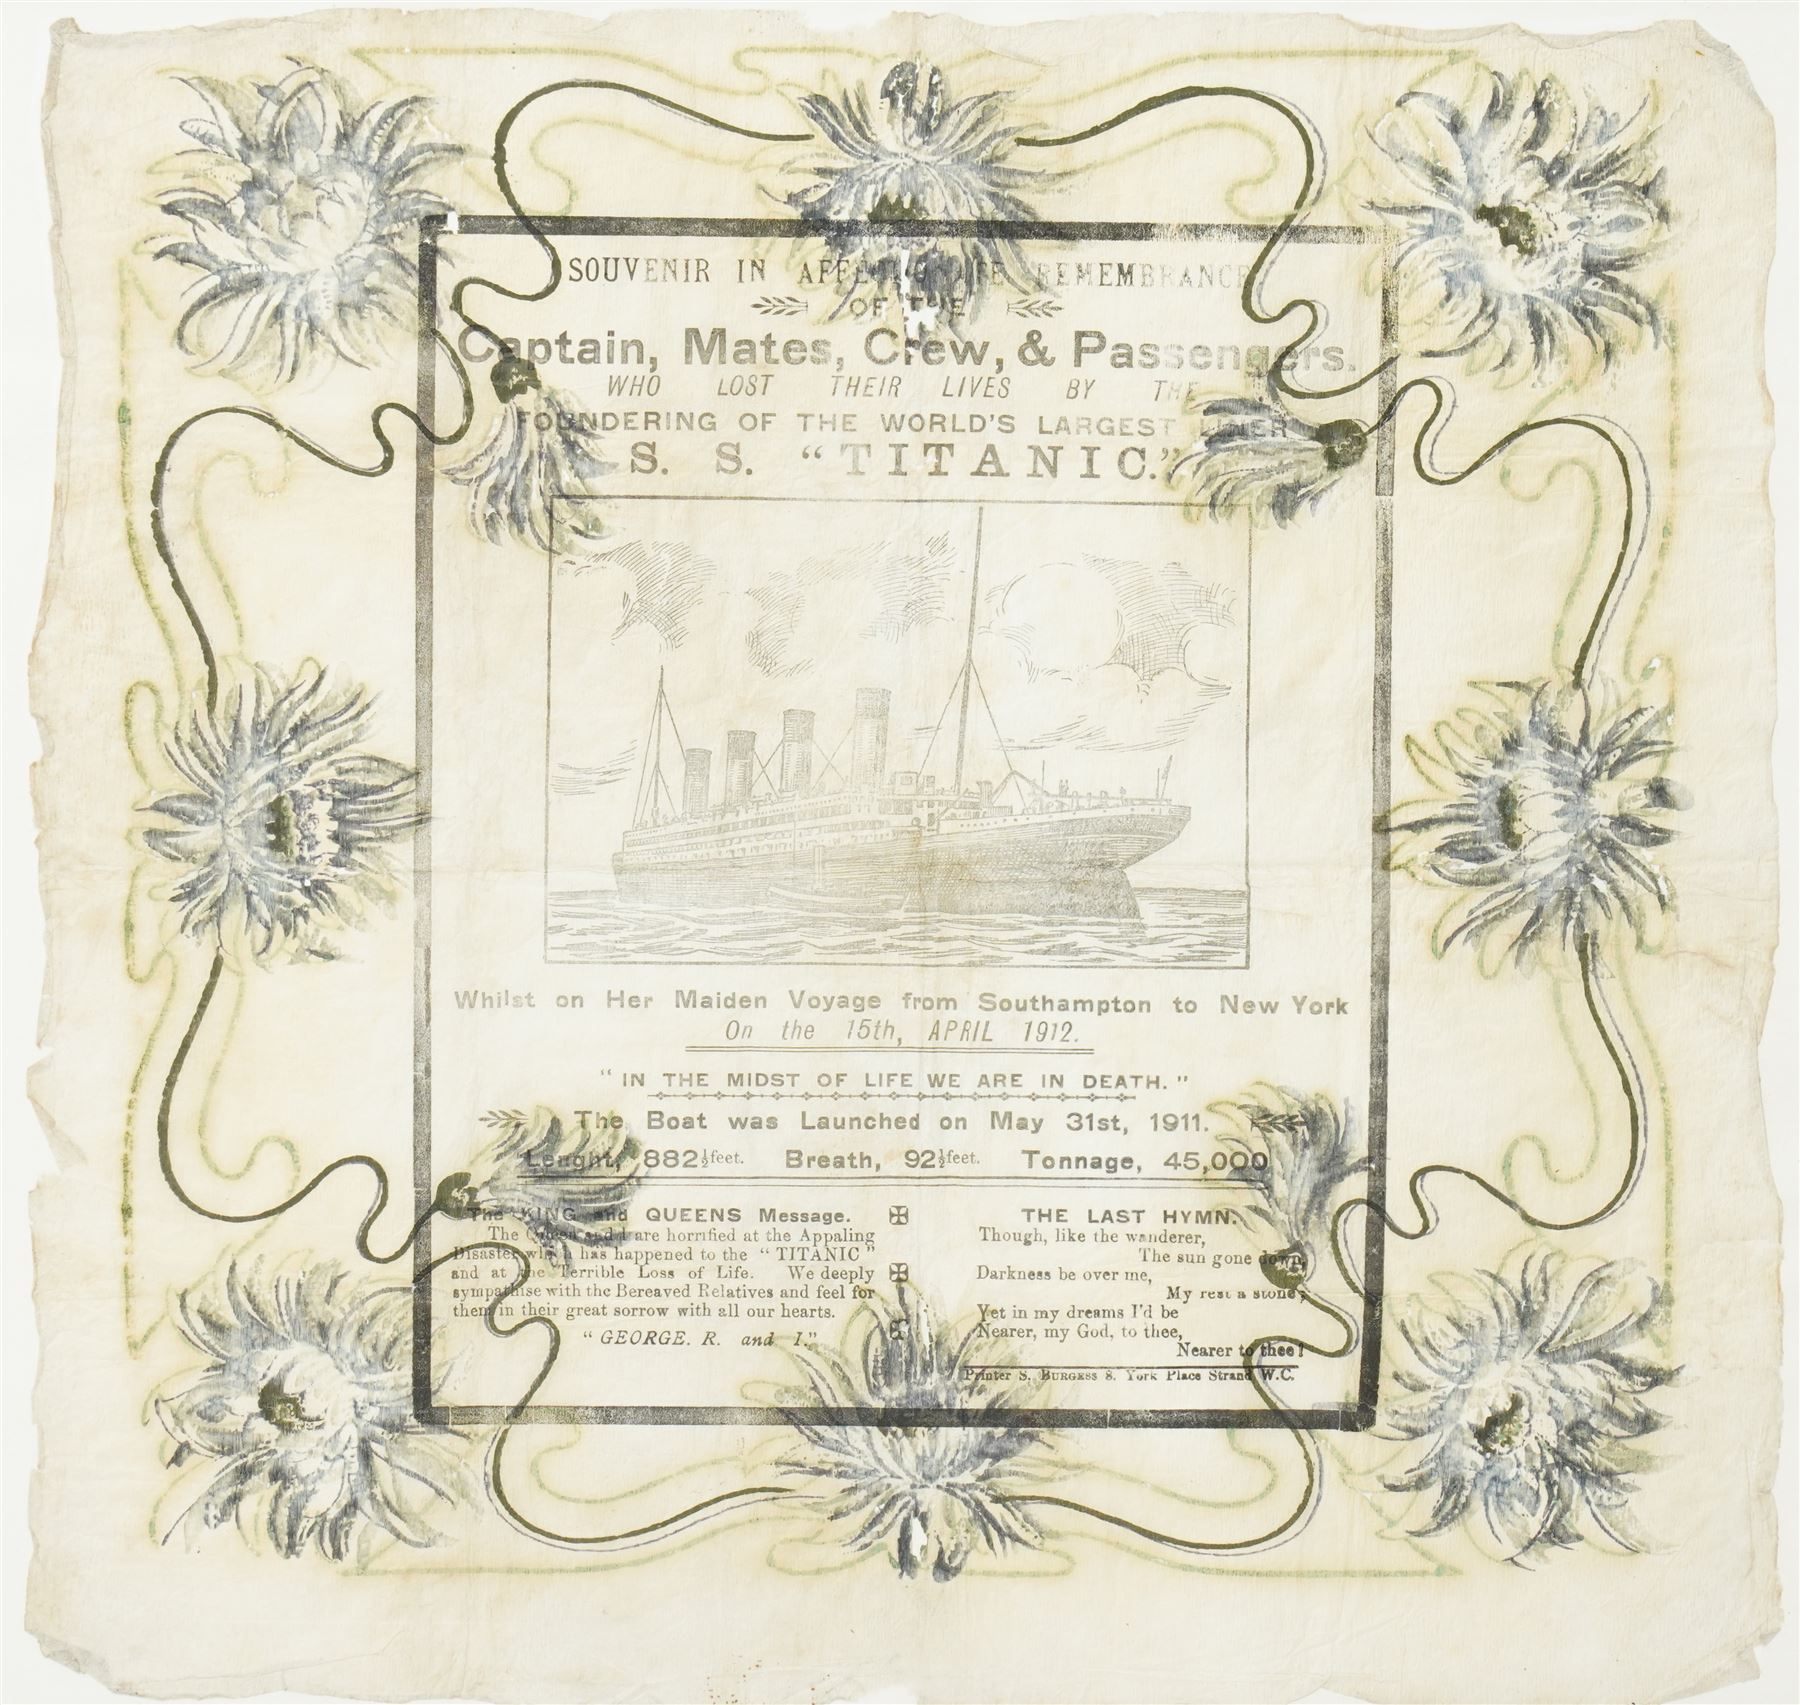 SOUVENIR IN AFFECTIONATE REMEMBRANCE
OF THE
Captain, Mates, Crew, & Passengers.
WHO LOST THEIR LIVES BY THE
FOUNDERING OF THE WORLD'S LARGEST LINER
S. S. "TITANIC."
Whilst on Her Maiden Voyage from Southampton to New York
On the 15th, APRIL 1912.
"IN THE MIDST OF LIFE WE ARE IN DEATH."
The Boat was Launched on May 31st, 1911.
Lenght, 882½feet. Breath, 92½feet. Tonnage, 45,000
The KING and QUEENS Message.
The Queen and I are horrified at the Appaling
Disaster which has happened to the "TITANIC"
and at the Terrible Loss of Life. We deeply
sympathise with the Bereaved Relatives and feel for
them in their great sorrow with all our hearts.
"GEORGE. R. and I."
THE LAST HYMN.
Though, like the wanderer,
The sun gone down,
Darkness be over me,
My rest a stone;
Yet in my dreams I'd be
Nearer, my God, to thee,
Nearer to thee!
Printer S. BURGESS 8. York Place Strand W.C.